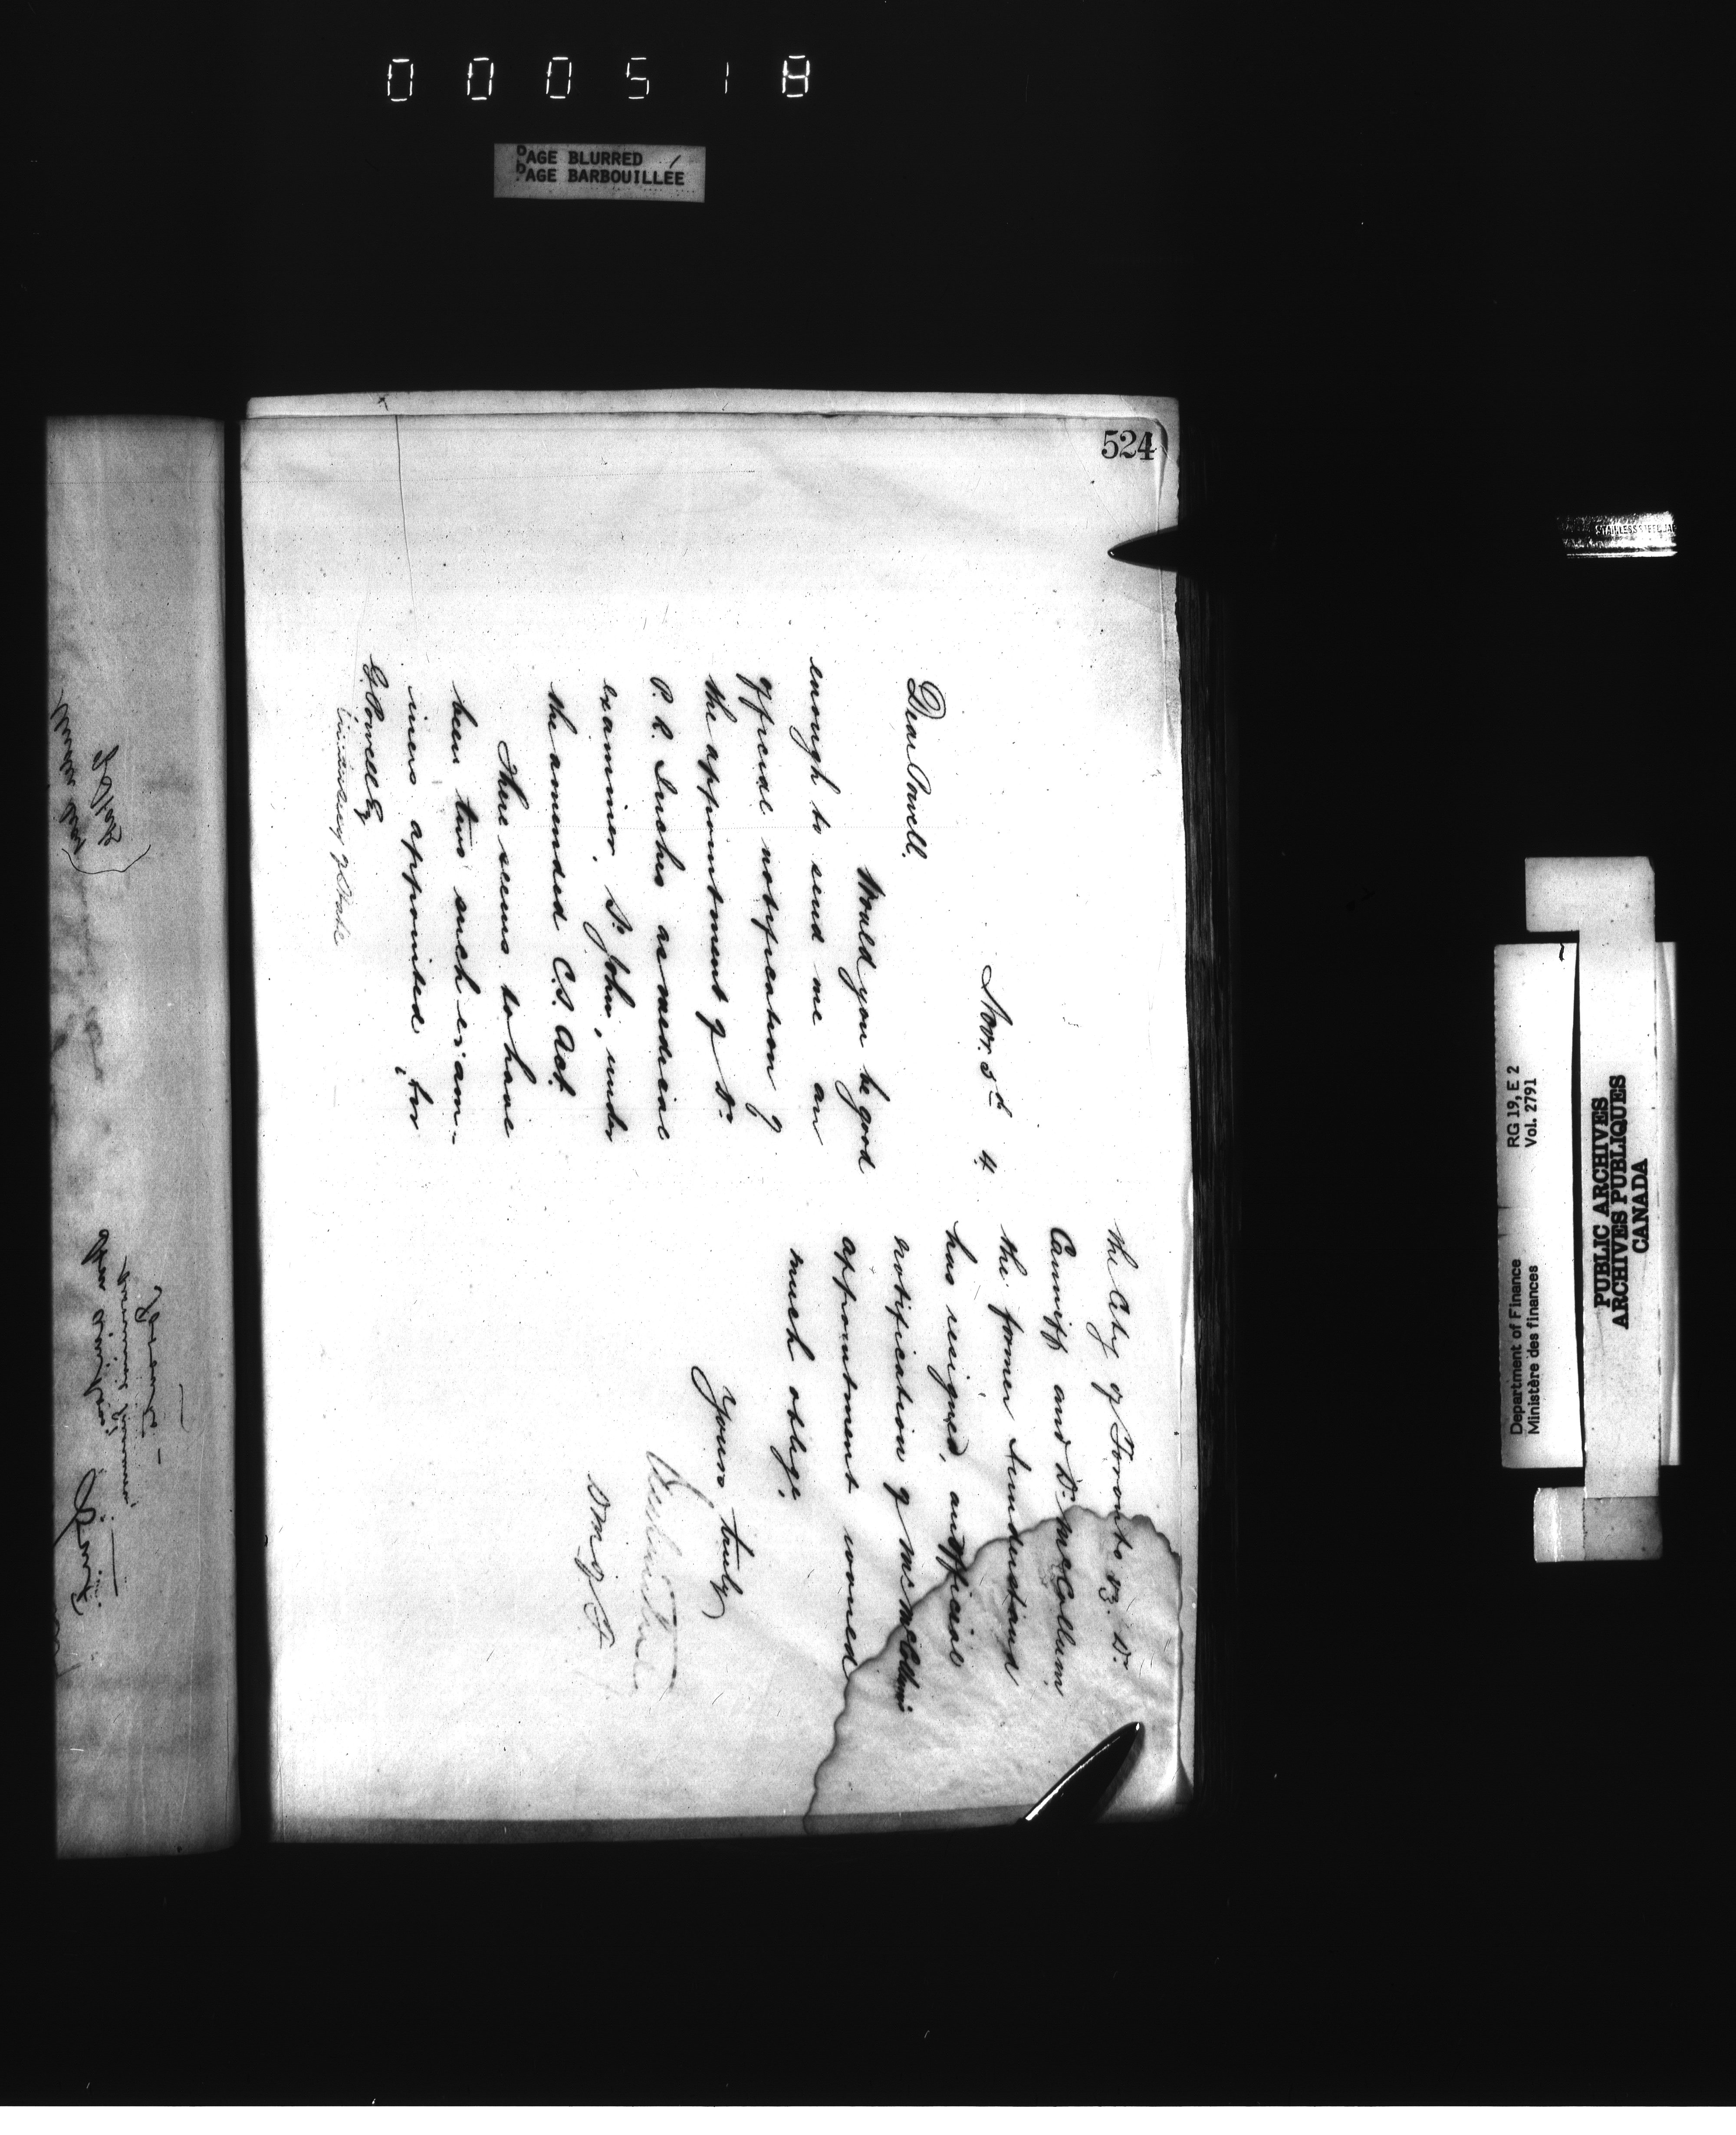 000518
PAGE BLURRED
PAGE BARBOUILLÉE
524
Novr. 5th 4
Dear Powell,
Would you be good
enough to send me an
official notification of
the appointment of Dr
P. R. Inches as medical
examiner, St John, under
the amended C.S. Act.
There seems to have
been two such exam-
iners appointed for
G. Powell Esq
of State
the City of Toronto vz. Dr
Canniff and Dr McCollum
the former I understand
has resigned, an official
notification of Mr McCollum's
appointment would
much oblige,
Yours truly
D M J F
STAINLESS STEEL
RG 19, E 2
Vol. 2791
Department of Finance
Ministère des finances
PUBLIC ARCHIVES
ARCHIVES PUBLIQUES
CANADA